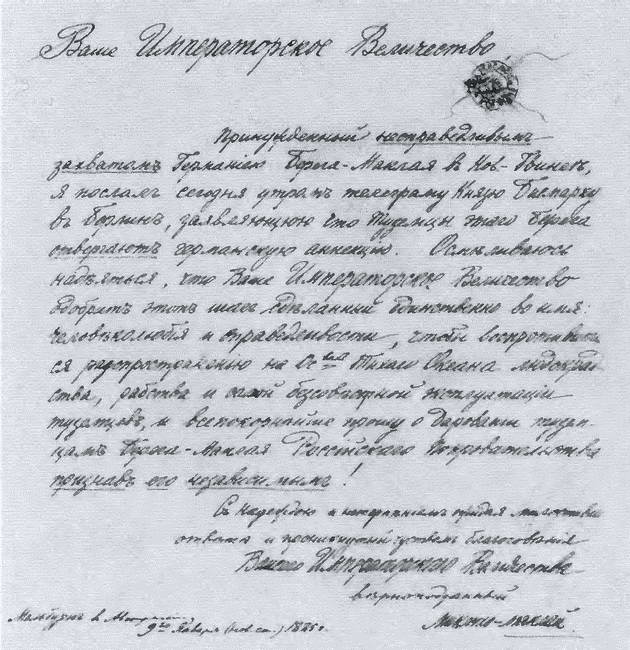 Ваше Императорское Величество,
Принужденный несправедливымъ
захватомъ Германіею Берега-Маклая в Нов.-Гвинеѣ,
я послалъ сегодня утромъ телеграму Князю Бисмарку
въ Берлинъ, заявляющую что туземцы этого Берега
отвергаютъ германскую аннекцію. Осмѣливаюсь
надѣяться, что Ваше Императорское Величество
одобритъ этотъ шагъ сдѣланный единственно во имя
человѣколюбія и справедливости, чтобы воспротивить
ся распространенію на Ос-ва Тихаго Океана людокрад
ства, рабства и самой безсовѣстной эксплуатаціи
туземцевъ, и всепокорнѣйше прошу о дарованіи тузем-
цамъ Берега-Маклая Россійскаго покровительства
признавъ его независимымъ!
Съ надеждою и нетерпѣніемъ ожидая милостиваго
отвѣта и проникнутый чувствомъ благоговенія
Вашего Императорскаго Величества
вѣрноподданный
Мельбурнъ в
9го Января (нов. ст.) 1885 г. Миклухо-Маклай.